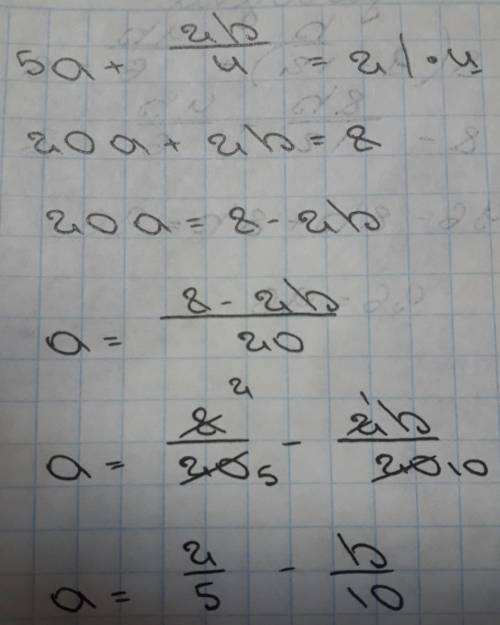 5a + 2b/4 = 2 | · 4
20a + 2b = 8
20a = 8 - 2b
a = 8 - 2b / 20
a = 8 2 / 20 5 - 2 1 b / 20 10
a = 2/5 - b/10